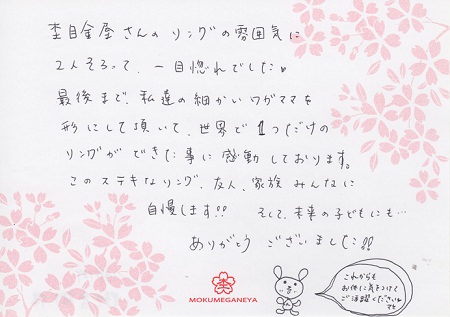 杢目金屋さんのリングの雰囲気に
2人そろって、一目惚れでした♥
最後まで、私達の細かいワガママを
形にして頂いて、世界で1つだけの
リングができた事に感動しております。
このステキなリング、友人、家族みんなに
自慢します!! そして、未来の子どもにも…
ありがとう ございました!!
MOKUMEGANEYA
これからも
お体に気をつけて
ご活躍ください♥